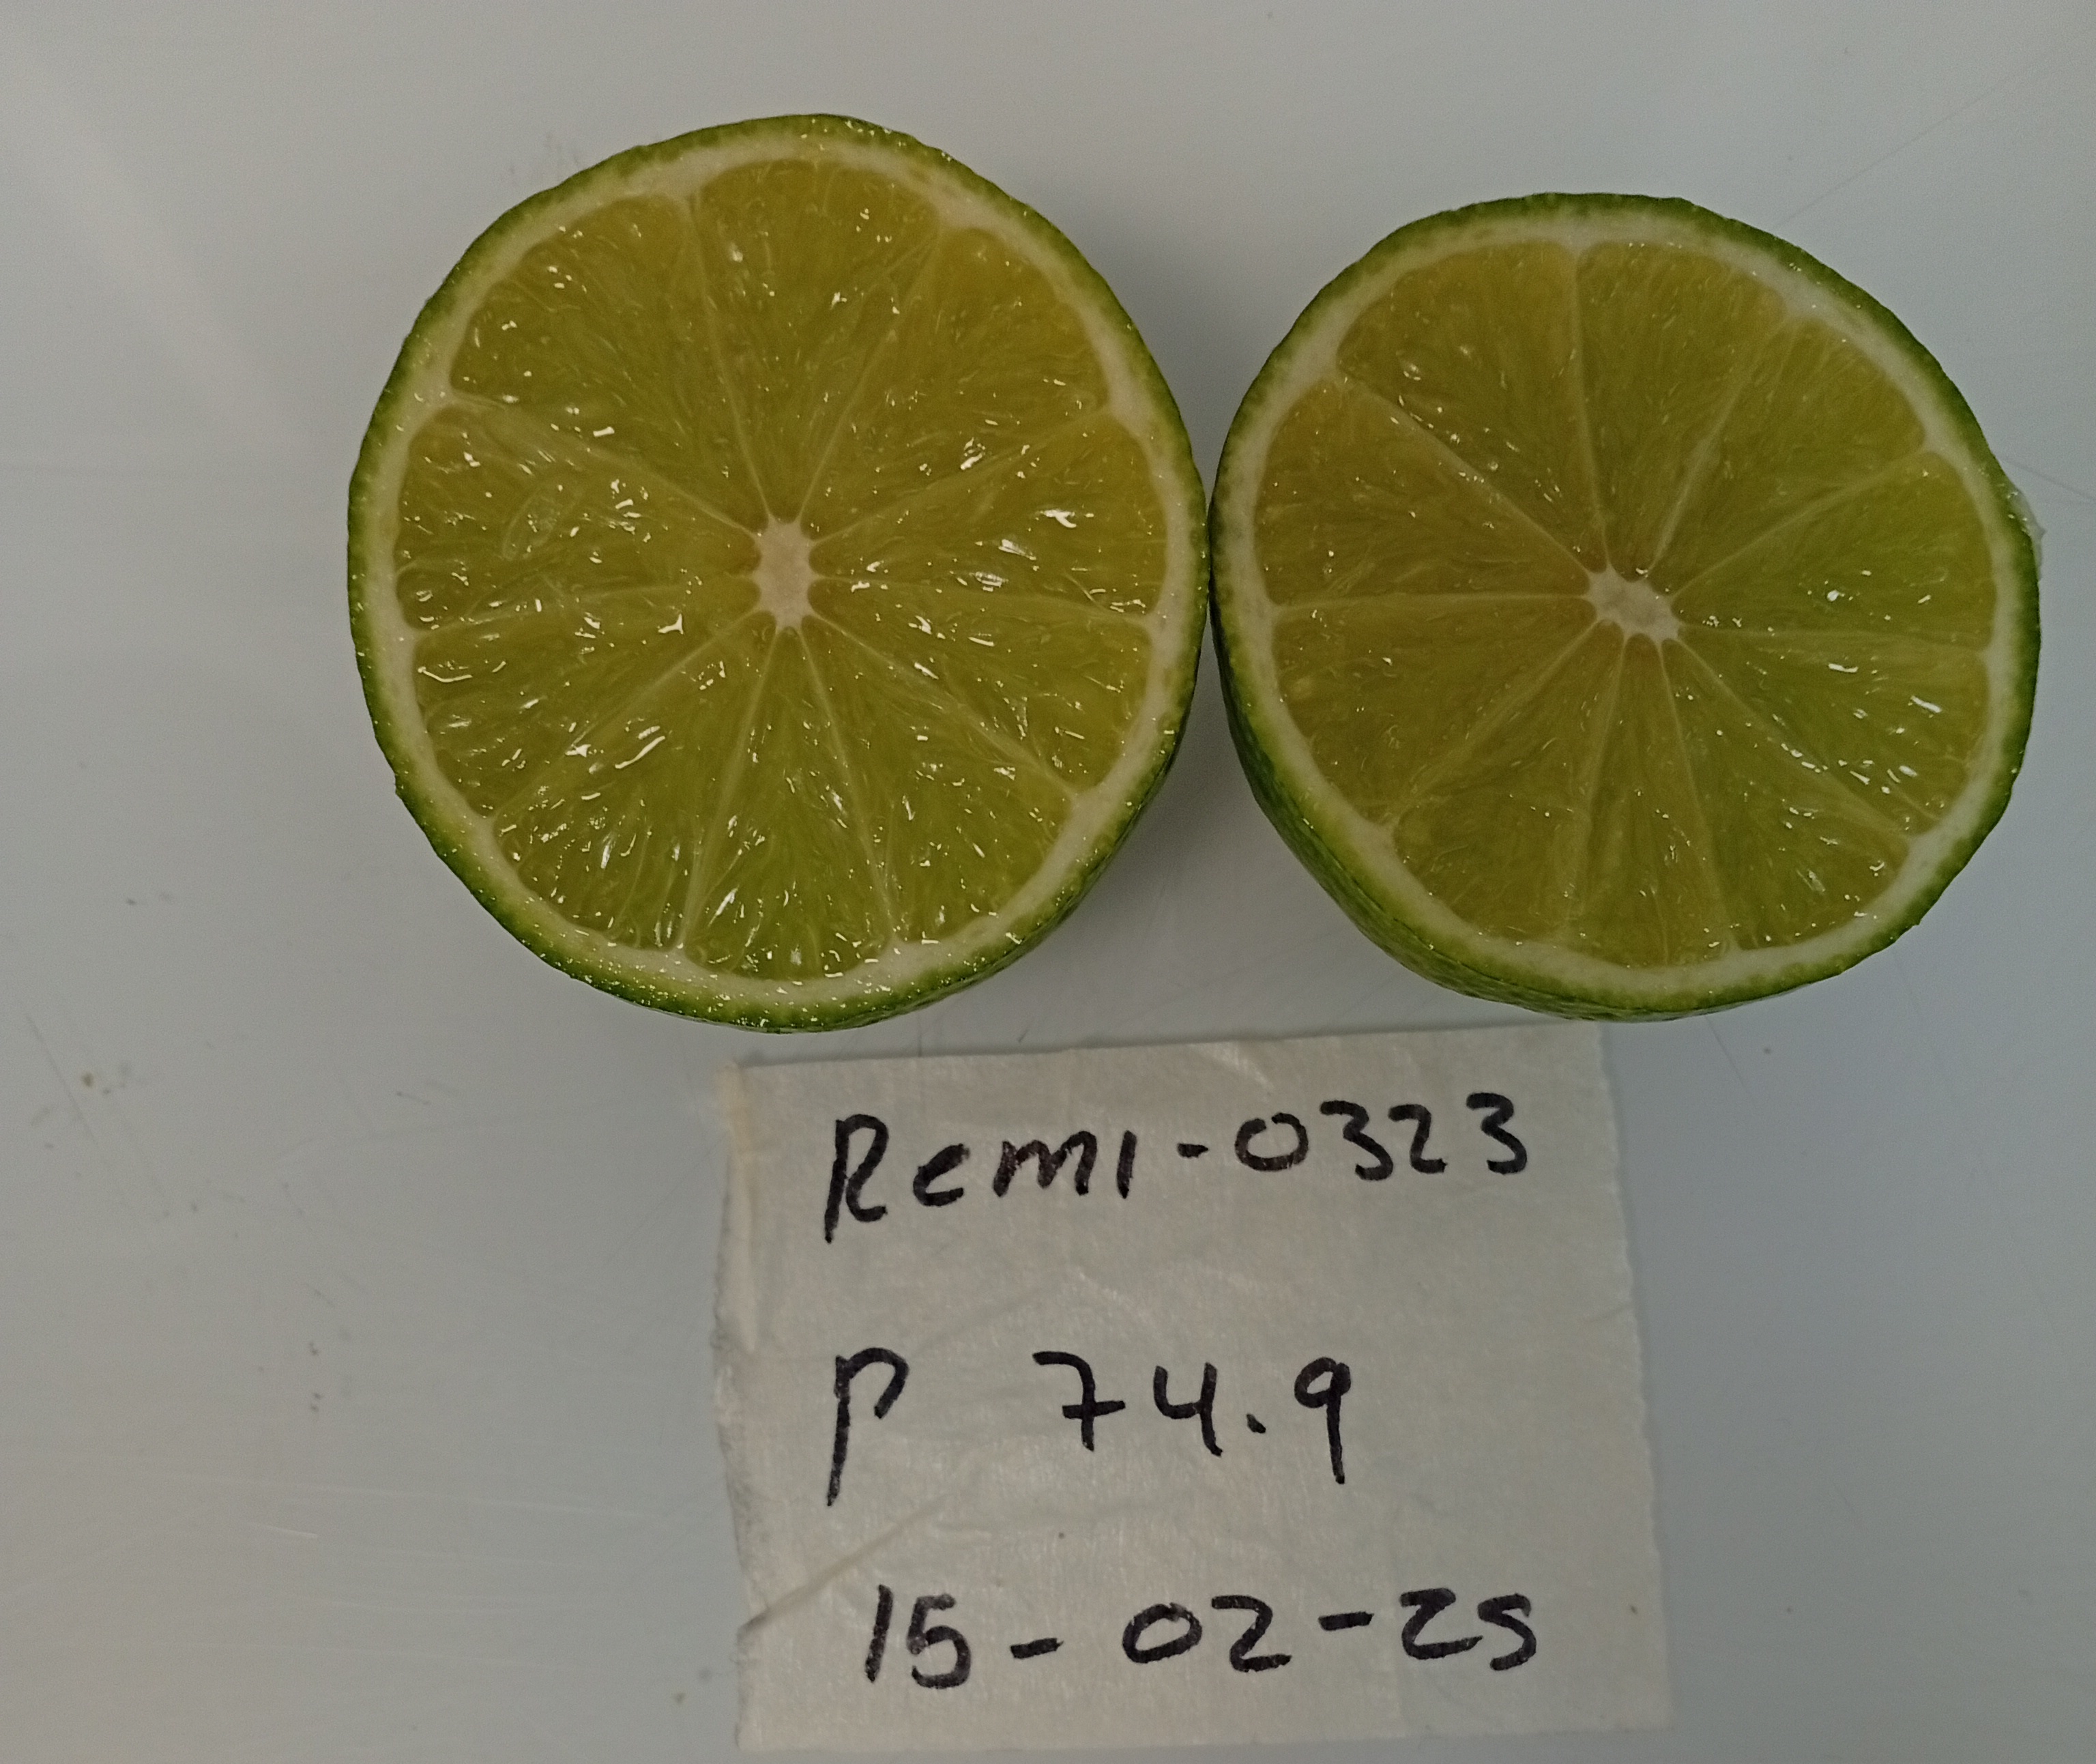 Remi-0323
P 74.9
15-02-25